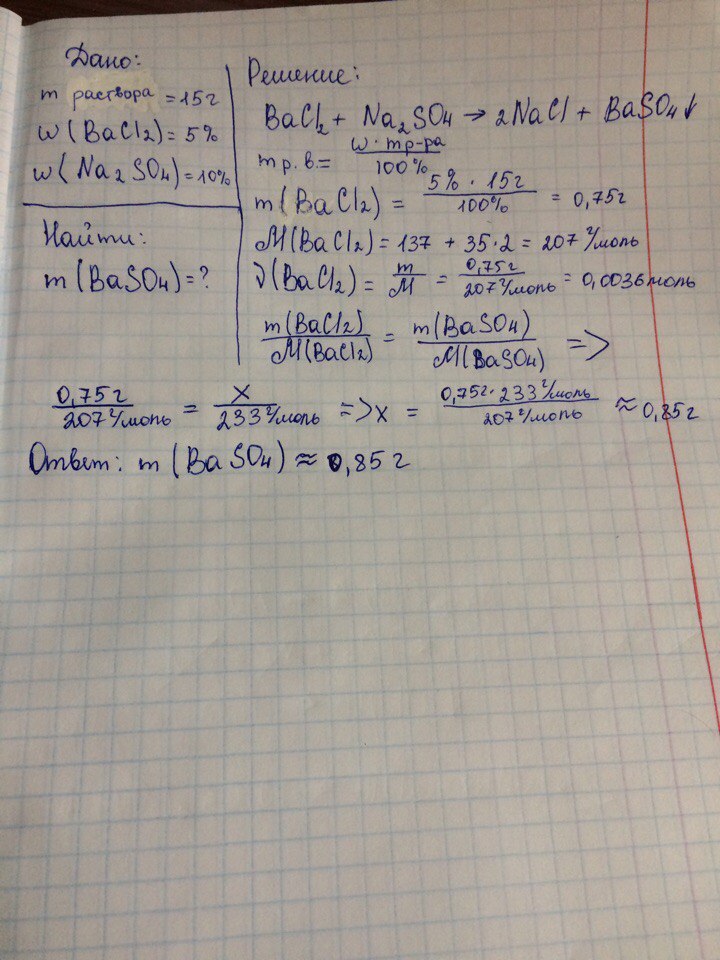 Дано:
m раствора = 15г
ω(BaCl2) = 5%
ω(Na2SO4) = 10%
Найти:
m(BaSO4) = ?
Решение:
BaCl2 + Na2SO4 → 2NaCl + BaSO4↓
m р.в. = ω · mр-ра / 100%
m(BaCl2) = 5% · 15г / 100% = 0,75г
M(BaCl2) = 137 + 35·2 = 207 г/моль
ν(BaCl2) = m/M = 0,75г / 207 г/моль = 0,0036моль
m(BaCl2) / M(BaCl2) = m(BaSO4) / M(BaSO4) =>
0,75г / 207 г/моль = x / 233 г/моль => x = 0,75г · 233 г/моль / 207 г/моль ≈ 0,85г
Ответ: m(BaSO4) ≈ 0,85г